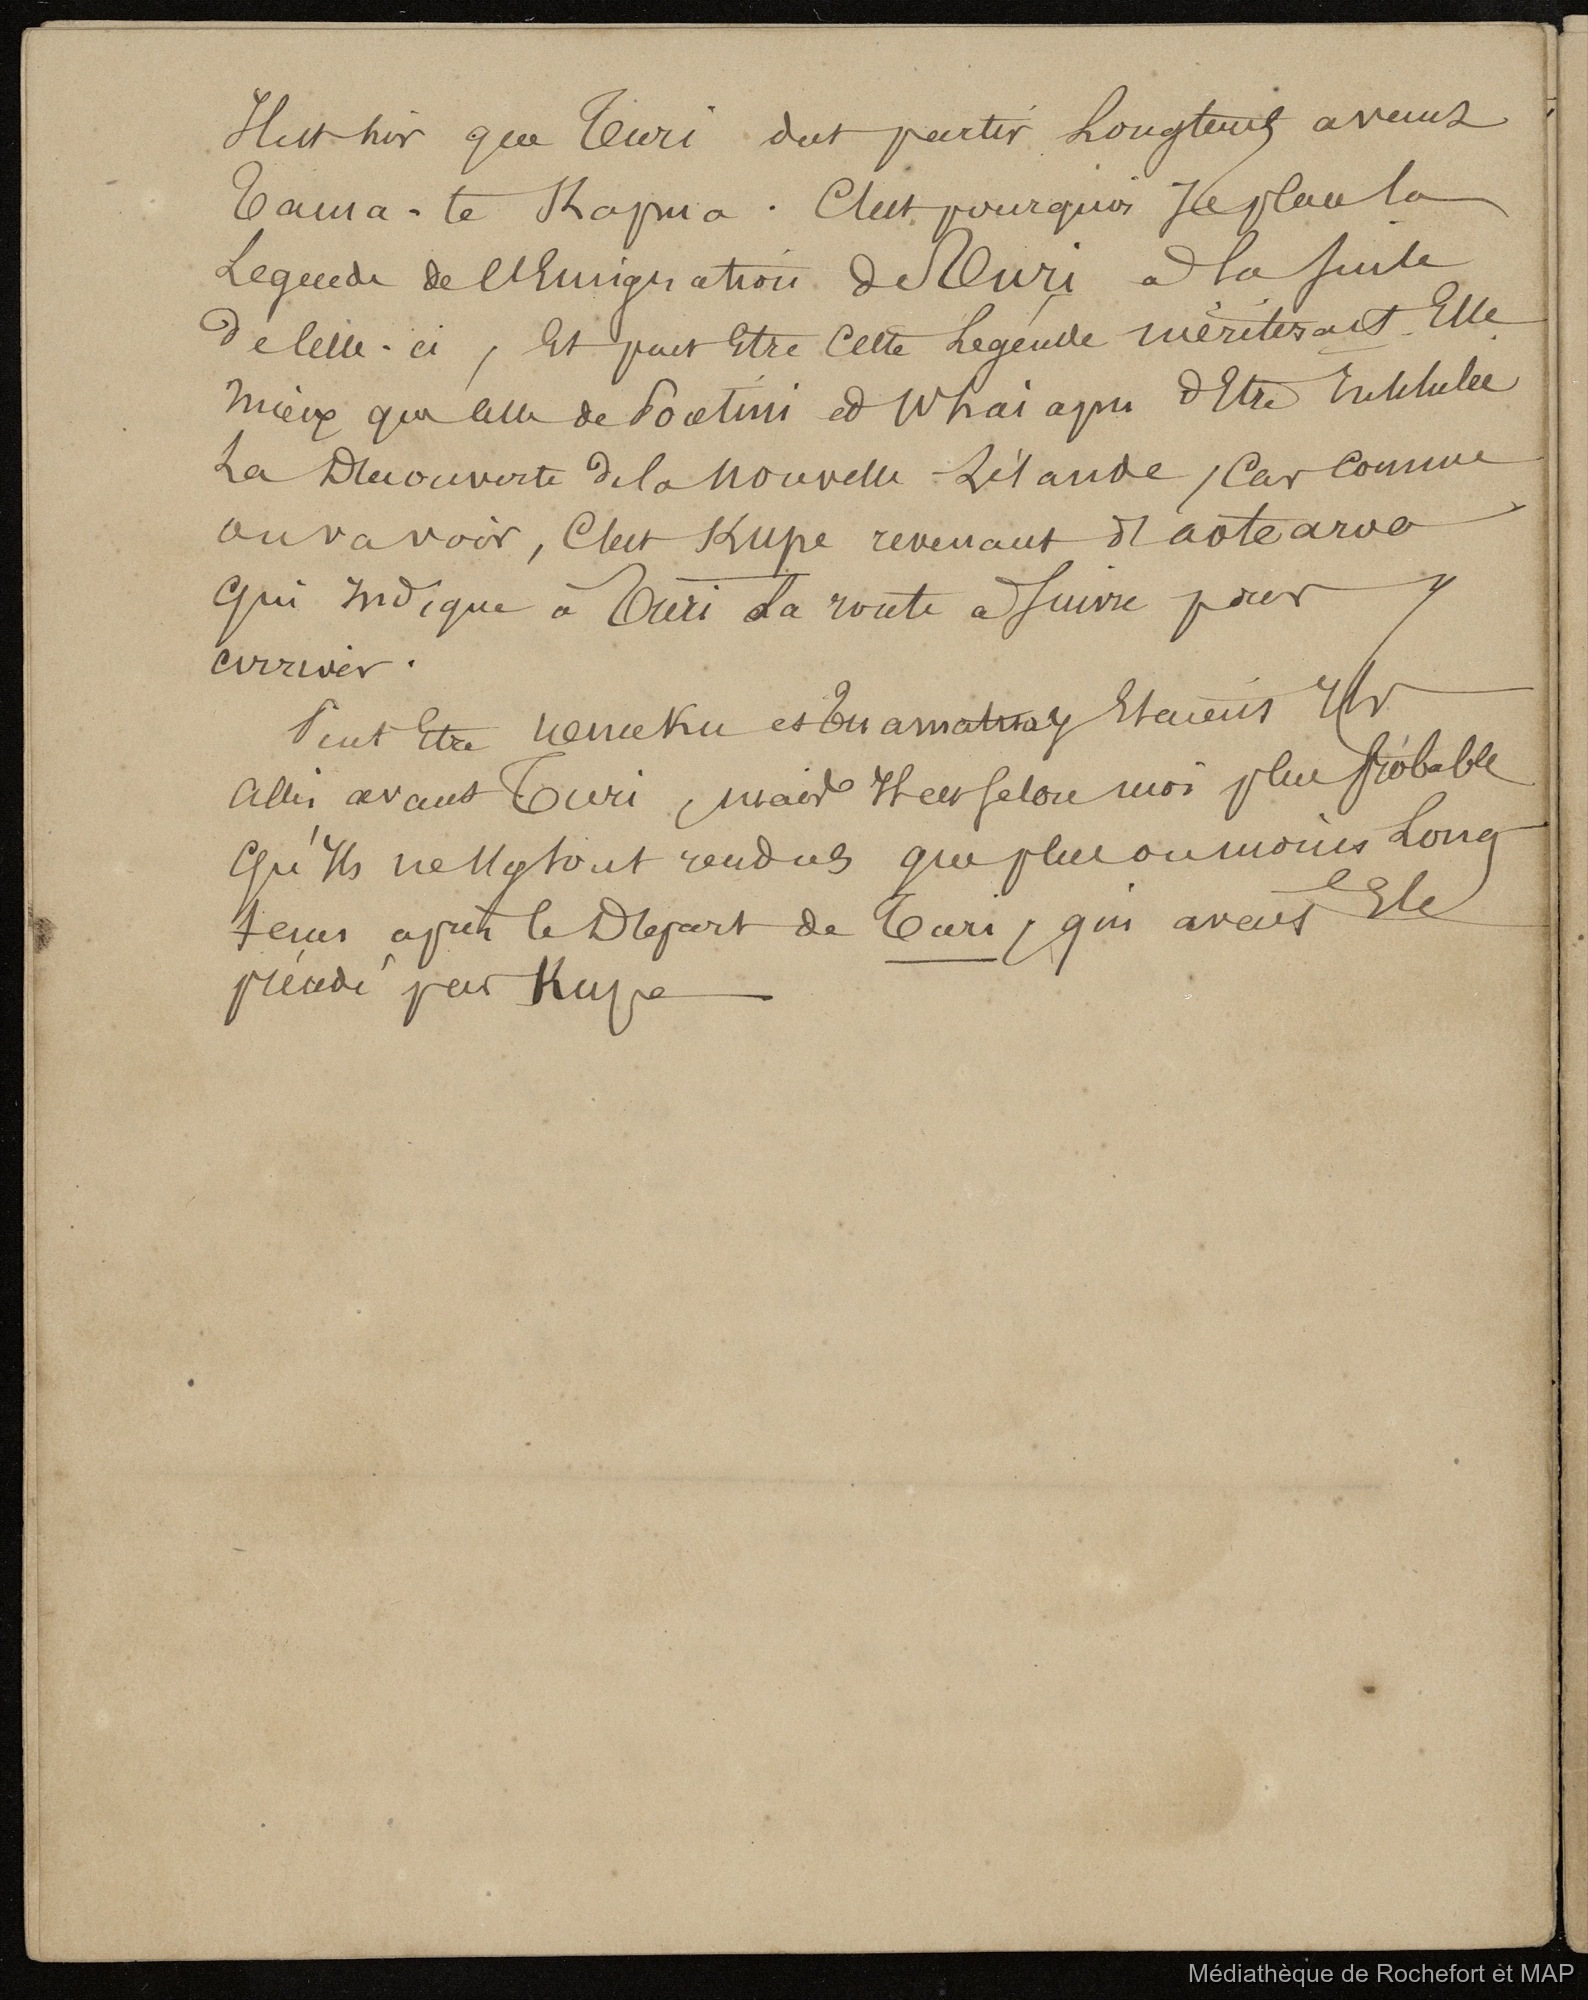 Il est sûr que Turi dut partir Longtems avant
Tama-te Kapua. C'est pourquoi Je place la
Légende de l'Emigration de Turi à la suite
de celle-ci, Et peut Etre cette Légende mériterait Elle
Mieux que celle de Poetini et Whaiapu d'Etre Intitulée
La Découverte de la Nouvelle-Zélande, Car comme
on va voir, C'est Kupe revenant d'aotearoa
Qui Indique à Turi La route à suivre pour y
arriver.
Peut Etre et Etaient Ils
Allés avant Turi, mais Il est selon moi plus probable
Qu'Ils ne s'y sont rendus que plus ou moins Long
tems après le Départ de Turi, qui avait Eté
précédé par Kupe
Médiathèque de Rochefort et MAP